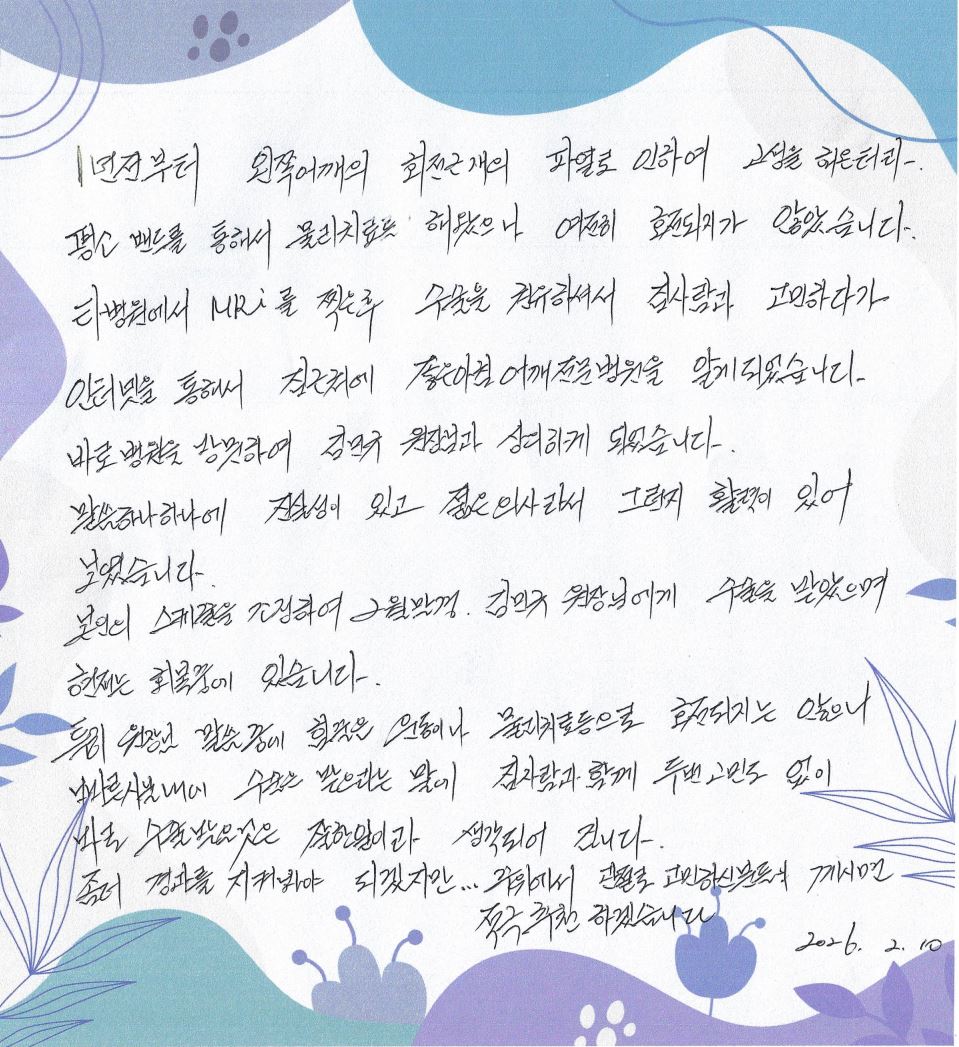 1년전부터 왼쪽어깨의 회전근개의 파열로 인하여 고생을 하온터라.
평소 밴드를 통해서 물리치료도 해왔으나 여전히 호전되지가 않았습니다.
타병원에서 MRi를 찍은후 수술을 권유하셔서 집사람과 고민하다가
인터넷을 통해서 집근처에 좋은아침 어깨전문병원을 알게되었습니다.
바로 병원을 방문하여 김민규 원장님과 상의하게 되었습니다.
말씀하나하나에 진실성이 있고 젊은의사라서 그런지 활력이 있어
보였습니다.
본인의 스케줄을 조정하여 2월말경. 김민규 원장님에게 수술을 받았으며
현재는 회복중에 있습니다.
특히 원장님 말씀중에 운동이나 물리치료등으로 호전되지는 않으나
빠른시일내에 수술을 받으라는 말에 집사람과 함께 두번 고민도 없이
바로 수술받은것은 잘한일이라 생각되어 집니다.
좀더 경과를 지켜봐야 되겠지만... 주위에서 고민하신분들이 계시면
적극추천 하겠습니다
2026. 2. 10